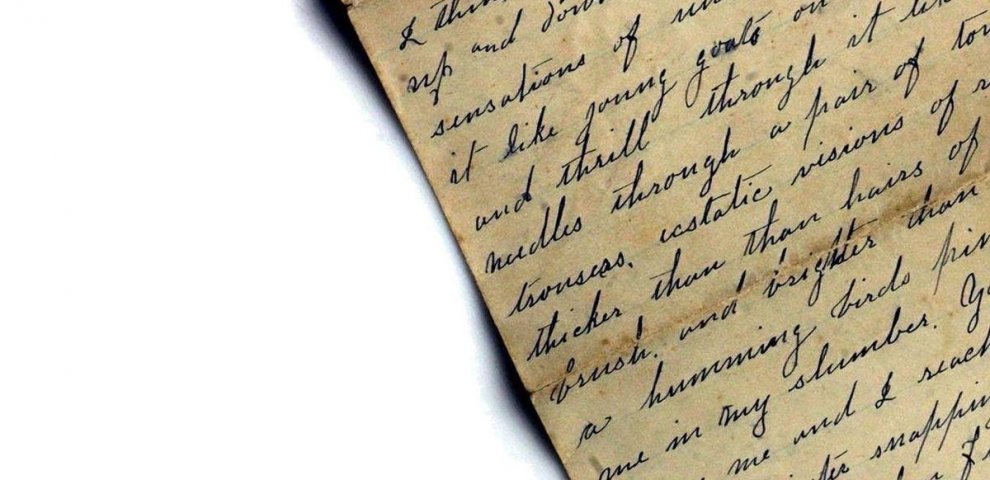 I thin
up and down
sensations of un
it like young goats on
and thrill through it like
needles through a pair of tow
trousers. ecstatic visions of
thicker than than hairs of
brush. and brighter than
a humming birds pin
me in my slumber. Yo
me and I reach
snappin